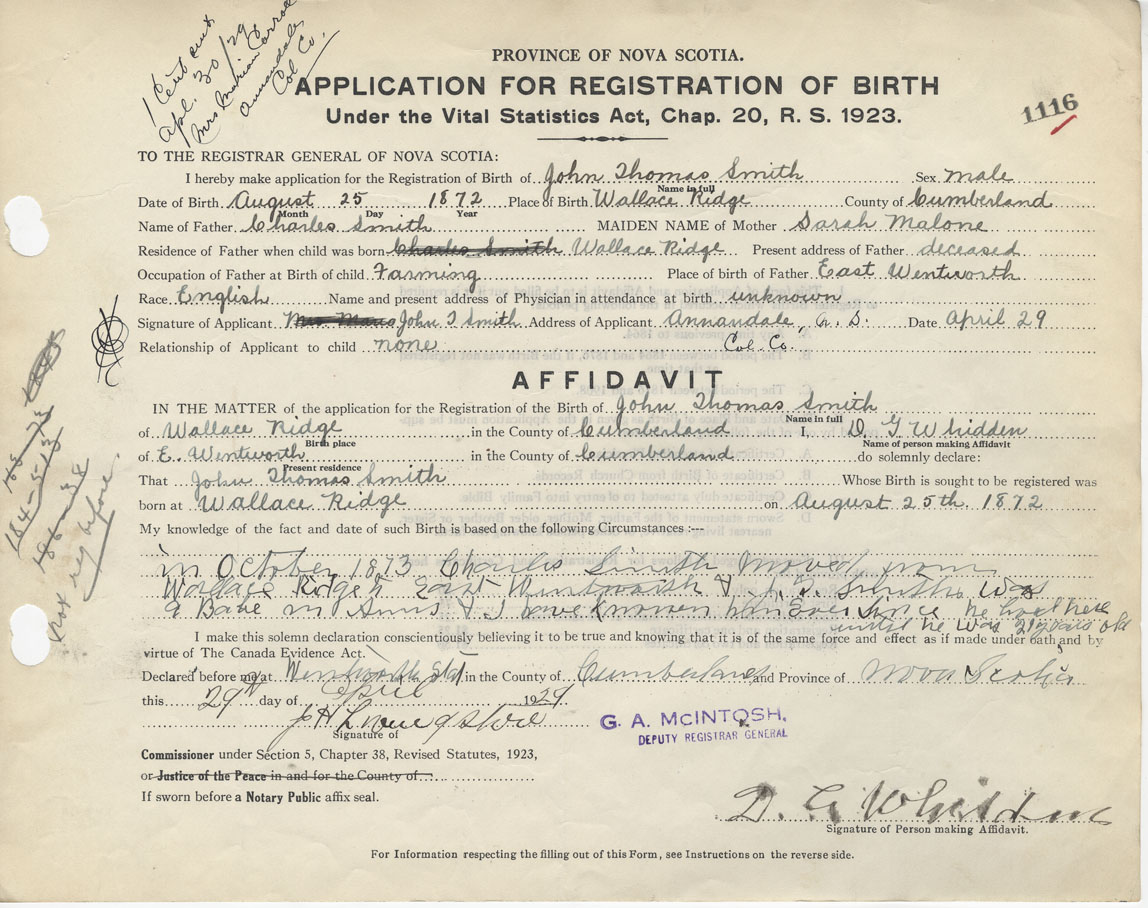 1 Cert sent
Apl. 30/29
Mrs Marian Carroll
Annandale
Col Co.
PROVINCE OF NOVA SCOTIA.
APPLICATION FOR REGISTRATION OF BIRTH
Under the Vital Statistics Act, Chap. 20, R. S. 1923.
1116
TO THE REGISTRAR GENERAL OF NOVA SCOTIA:
I hereby make application for the Registration of Birth of John Thomas Smith Sex male
Name in full
Date of Birth August 25 1872 Place of Birth Wallace Ridge County of Cumberland
Month Day Year
Name of Father Charles Smith MAIDEN NAME of Mother Sarah Malone
Residence of Father when child was born Charles Smith Wallace Ridge Present address of Father deceased
Occupation of Father at Birth of child Farming Place of birth of Father East Wentworth
Race English Name and present address of Physician in attendance at birth unknown
Signature of Applicant Mrs John T Smith Address of Applicant Annandale, N. S. Date April 29
Relationship of Applicant to child none Col. Co.
AFFIDAVIT
IN THE MATTER of the application for the Registration of the Birth of John Thomas Smith
Name in full
of Wallace Ridge in the County of Cumberland I, D. G Whidden
Birth place Name of person making Affidavit
of E. Wentworth in the County of Cumberland do solemnly declare:
Present residence
That John Thomas Smith Whose Birth is sought to be registered was
born at Wallace Ridge on August 25th 1872
My knowledge of the fact and date of such Birth is based on the following Circumstances :---
in October 1873 Charles Smith moved from
Wallace Ridge to East Wentworth & J. T. Smith was
a Babe in Arms & I have known him Ever since he lived here
until he was 21 years old
I make this solemn declaration conscientiously believing it to be true and knowing that it is of the same force and effect as if made under oath and by
virtue of The Canada Evidence Act.
Declared before me at Wentworth Std in the County of Cumberland and Province of Nova Scotia
this 29th day of April 1929
J H
Signature of
G. A. McINTOSH,
DEPUTY REGISTRAR GENERAL
Commissioner under Section 5, Chapter 38, Revised Statutes, 1923,
or Justice of the Peace in and for the County of
If sworn before a Notary Public affix seal.
D. G Whidden
Signature of Person making Affidavit.
For Information respecting the filling out of this Form, see Instructions on the reverse side.
Not reg before.